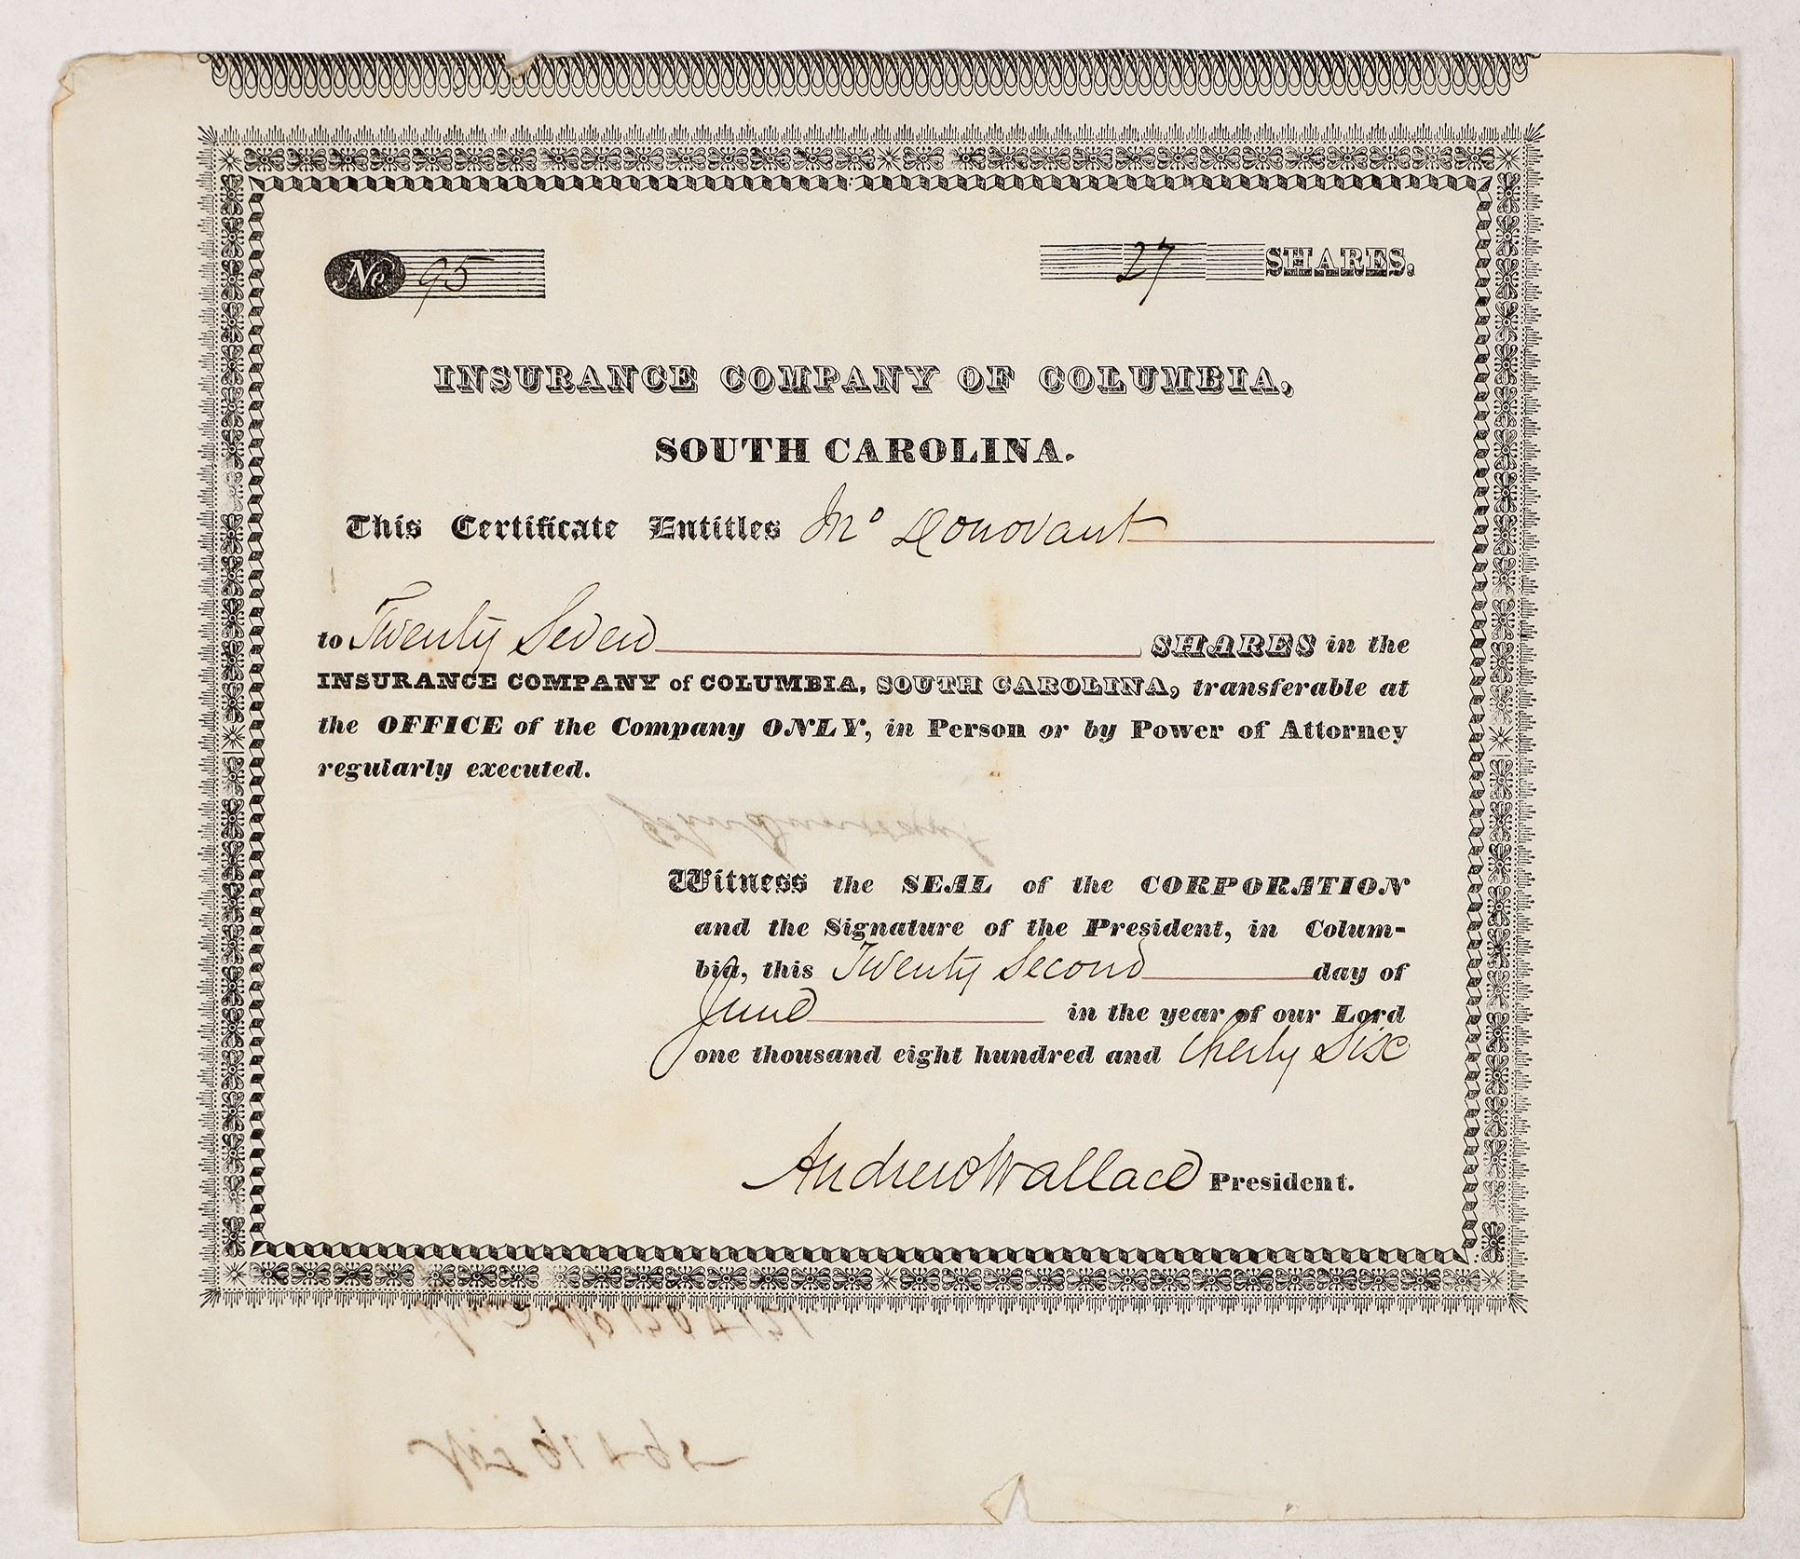 No 95 27 SHARES.
INSURANCE COMPANY OF COLUMBIA,
SOUTH CAROLINA.
This Certificate Entitles Jnº Donovant
to Twenty Seven SHARES in the
INSURANCE COMPANY of COLUMBIA, SOUTH CAROLINA, transferable at
the OFFICE of the Company ONLY, in Person or by Power of Attorney
regularly executed.
Witness the SEAL of the CORPORATION
and the Signature of the President, in Colum-
bia, this Twenty Second day of
June in the year of our Lord
one thousand eight hundred and Thirty Six
Andrew Wallace President.